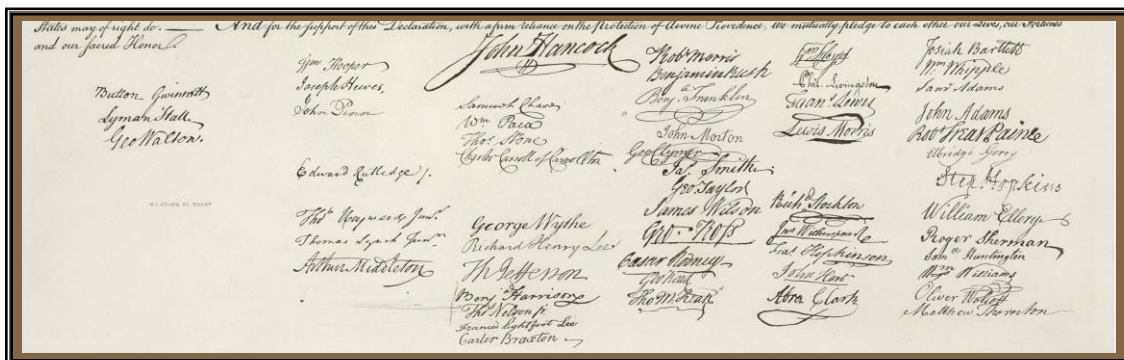 States may of right do. — And for the support of this Declaration, with a firm reliance on the protection of divine Providence, we mutually pledge to each other our Lives, our Fortunes
and our sacred Honor.
Button Gwinnett
Lyman Hall
Geo Walton.
W.J. STONE SC. WASHN
Wm Hooper
Joseph Hewes,
John Penn
Edward Rutledge /.
Thos Heyward Junr.
Thomas Lynch Junr.
Arthur Middleton
John Hancock
Samuel Chase
Wm Paca
Thos. Stone
Charles Carroll of Carrollton
George Wythe
Richard Henry Lee
Th Jefferson
Benj Harrison
Thos Nelson jr.
Francis Lightfoot Lee
Carter Braxton
Robt Morris
Benjamin Rush
Benj. Franklin
John Morton
Geo Clymer
Jas. Smith
Geo. Taylor
James Wilson
Geo. Ross
Caesar Rodney
Geo Read
Tho M:Kean
Wm Floyd
Phil. Livingston
Frans. Lewis
Lewis Morris
Richd. Stockton
Jno Witherspoon
Fras. Hopkinson
John Hart
Abra Clark
Josiah Bartlett
Wm. Whipple
Saml Adams
John Adams
Robt Treat Paine
Elbridge Gerry
Step. Hopkins
William Ellery
Roger Sherman
Sam el Huntington
Wm Williams
Oliver Wolcott
Matthew Thornton